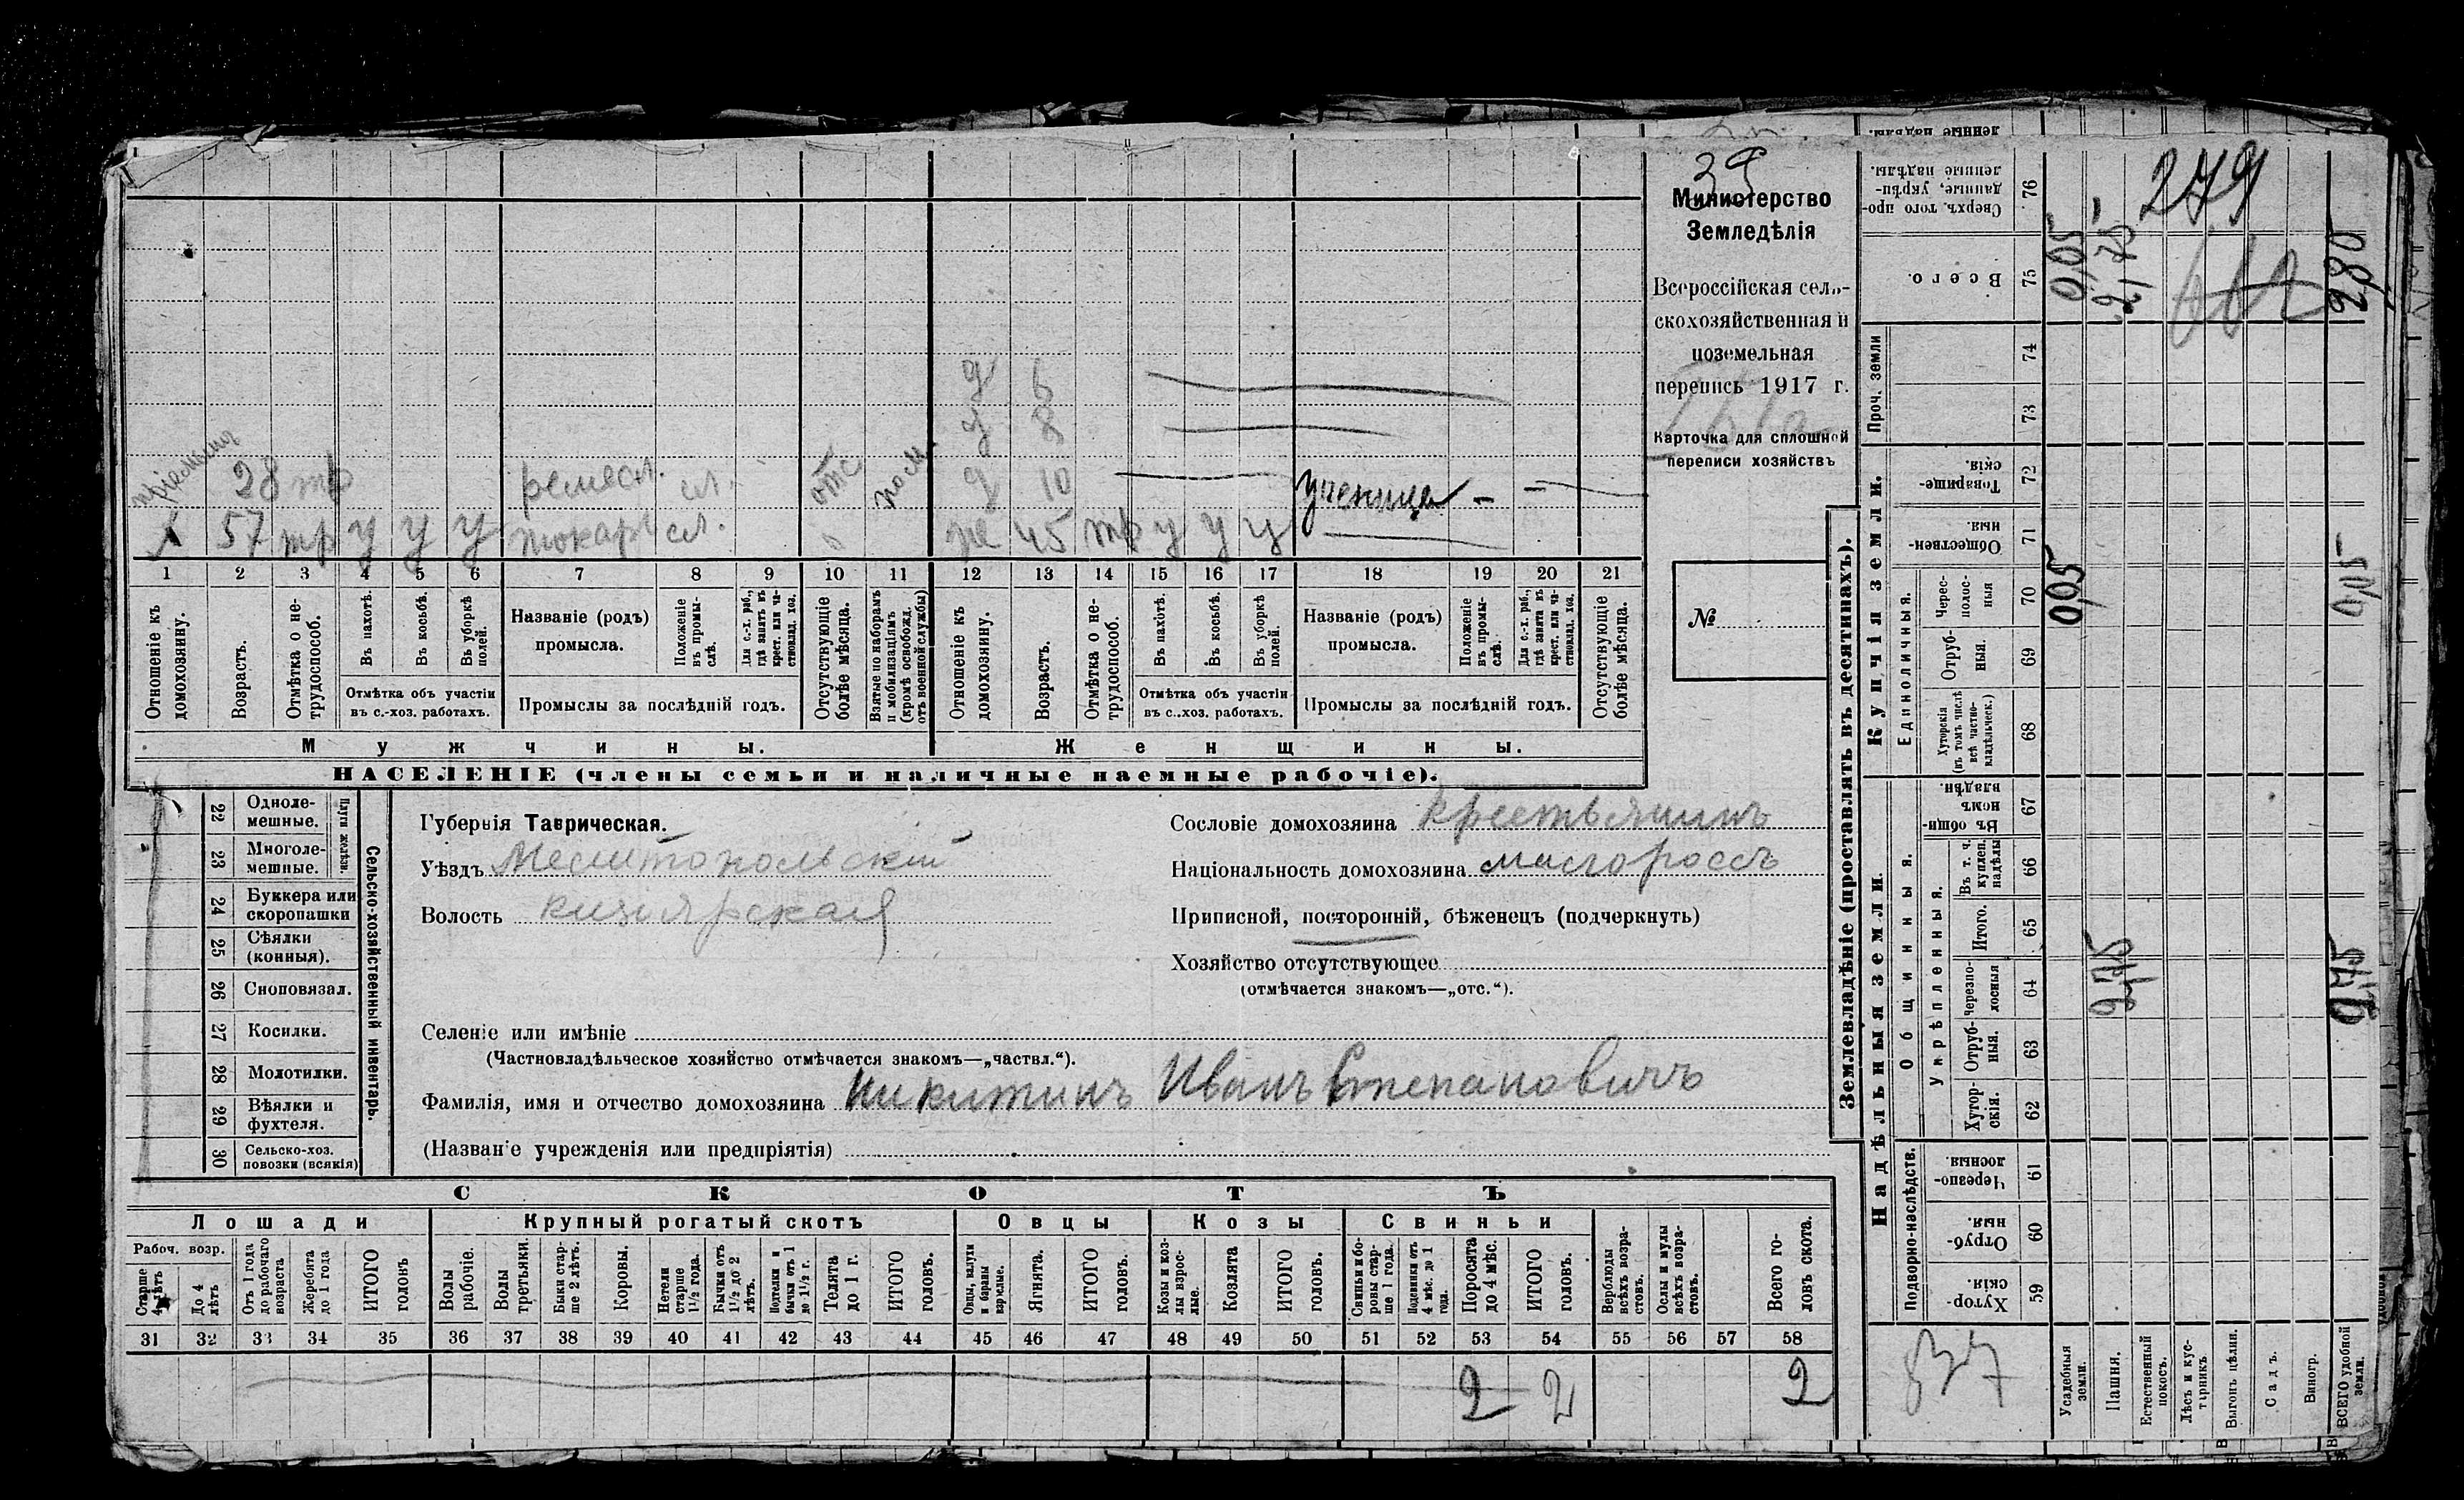 39
Министерство
Земледѣлія
Всероссійская сель-
скохозяйственная и
поземельная
перепись 1917 г.
Карточка для сплошной
переписи хозяйствъ
№
279
д 6
д 8
пріемышъ 28 тр ремесл. сл. отс д 10 ученица - -
57 тр у у у токарь сл. же 45 тр у у у
1 2 3 4 5 6 7 8 9 10 11 12 13 14 15 16 17 18 19 20 21
Отношеніе къ домохозяину.
Возрастъ.
Отмѣтка о не-трудоспособ.
Въ пахотѣ.
Въ косьбѣ.
Въ уборкѣ полей.
Отмѣтка объ участіи
въ с.-хоз. работахъ.
Названіе (родъ)
промысла.
Положеніе въ промы-слѣ.
Для с.-х. раб., гдѣ занятъ въ крест. или ча-стновлад. хоз.
Промыслы за послѣдній годъ.
Отсутствующіе болѣе мѣсяца.
Взятые по наборамъ и мобилизаціямъ (кромѣ освобожд. отъ военной службы)
Отношеніе къ домохозяину.
Возрастъ.
Отмѣтка о не-трудоспособ.
Въ пахотѣ.
Въ косьбѣ.
Въ уборкѣ полей.
Отмѣтка объ участіи
въ с.-хоз. работахъ.
Названіе (родъ)
промысла.
Положеніе въ промы-слѣ.
Для с.-х. раб., гдѣ занята въ крест. или ча-стновлад. хоз.
Промыслы за послѣдній годъ.
Отсутствующіе болѣе мѣсяца.
Мужчины.
Женщины.
НАСЕЛЕНІЕ (члены семьи и наличные наемные рабочіе).
Сельско-хозяйственный инвентарь.
Плуги желѣзн.
22 Одноле-мешные.
23 Многоле-мешные.
24 Буккера или скоропашки
25 Сѣялки (конныя).
26 Сноповязал.
27 Косилки.
28 Молотилки.
29 Вѣялки и фухтеля.
30 Сельско-хоз. повозки (всякія)
Губернія Таврическая.
Уѣздъ Мелитопольскій
Волость Кизіярская
Сословіе домохозяина крестьянинъ
Національность домохозяина малороссъ
Приписной, посторонній, бѣженецъ (подчеркнуть)
Хозяйство отсутствующее
(отмѣчается знакомъ—„отс.“).
Селеніе или имѣніе
(Частновладѣльческое хозяйство отмѣчается знакомъ—„частвл.“).
Фамилія, имя и отчество домохозяина Никитинъ Иванъ Степановичъ
(Названіе учрежденія или предпріятія)
СКОТЪ
Лошади
Крупный рогатый скотъ
Овцы
Козы
Свиньи
Рабоч. возр.
Старше 4 лѣтъ
До 4 лѣтъ
Отъ 1 года до рабочаго возраста
Жеребята до 1 года
ИТОГО головъ
Волы рабочіе.
Волы третьяки.
Быки стар-ше 2 лѣтъ.
Коровы.
Нетели старше 1½ года.
Бычки отъ 1½ до 2 лѣтъ.
Подтелки и бычки отъ 1 до 1½ г.
Телята до 1 г.
ИТОГО головъ.
Овцы, валухи и бараны взрослые.
Ягнята.
ИТОГО головъ.
Козы и коз-лы взрос-лые.
Козлята
ИТОГО головъ.
Свиньи и бо-ровы стар-ше 1 года.
Подсвинки отъ 4 мѣс. до 1 года.
Поросята до 4 мѣс.
ИТОГО головъ.
Верблюды всѣхъ возра-стовъ.
Ослы и мулы всѣхъ возра-стовъ.
Всего го-ловъ скота.
31 32 33 34 35 36 37 38 39 40 41 42 43 44 45 46 47 48 49 50 51 52 53 54 55 56 57 58
2 2 2
Землевладѣніе (проставлять въ десятинахъ).
Купчія земли.
Надѣльныя земли.
Сверхъ того про-данные, укрѣп-ленные надѣлы. 76
Всего. 75 0,05 2,75 2,80
Проч. земли 74
73
Товарище-скія. 72
Обществен-ныя 71
Единоличныя.
Черес-полос-ныя 70 0,05 0,05
Отруб-ныя. 69
Хуторскія (въ томъ числѣ всѣ частно-владѣльческ.) 68
Общинныя.
Въ общи-нномъ владѣн. 67
Укрѣпленныя.
Въ т. ч. куплен. надѣлы 66
Итого. 65
Черезпо-лосныя 64 2,75 2,75
Отруб-ныя. 63
Хутор-скія. 62
Подворно-наслѣдств.
Черезпо-лосныя. 61
Отруб-ныя. 60
Хутор-скія. 59
837
Усадебныя земли.
Пашня.
Естественный покосъ.
Лѣсъ и кус-тарникъ
Выгонъ цѣлин.
Садъ.
Виногр.
ВСЕГО удобной земли.